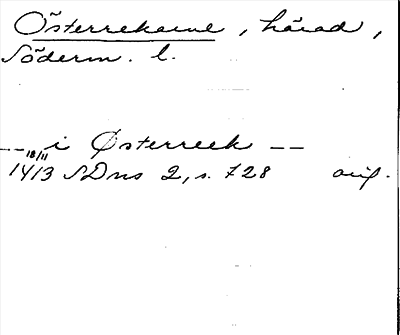 Österrekarne, härad,
Söderm. l.
-- i Østerreek --
18/11
1413 SDns 2, s. 728 orig.